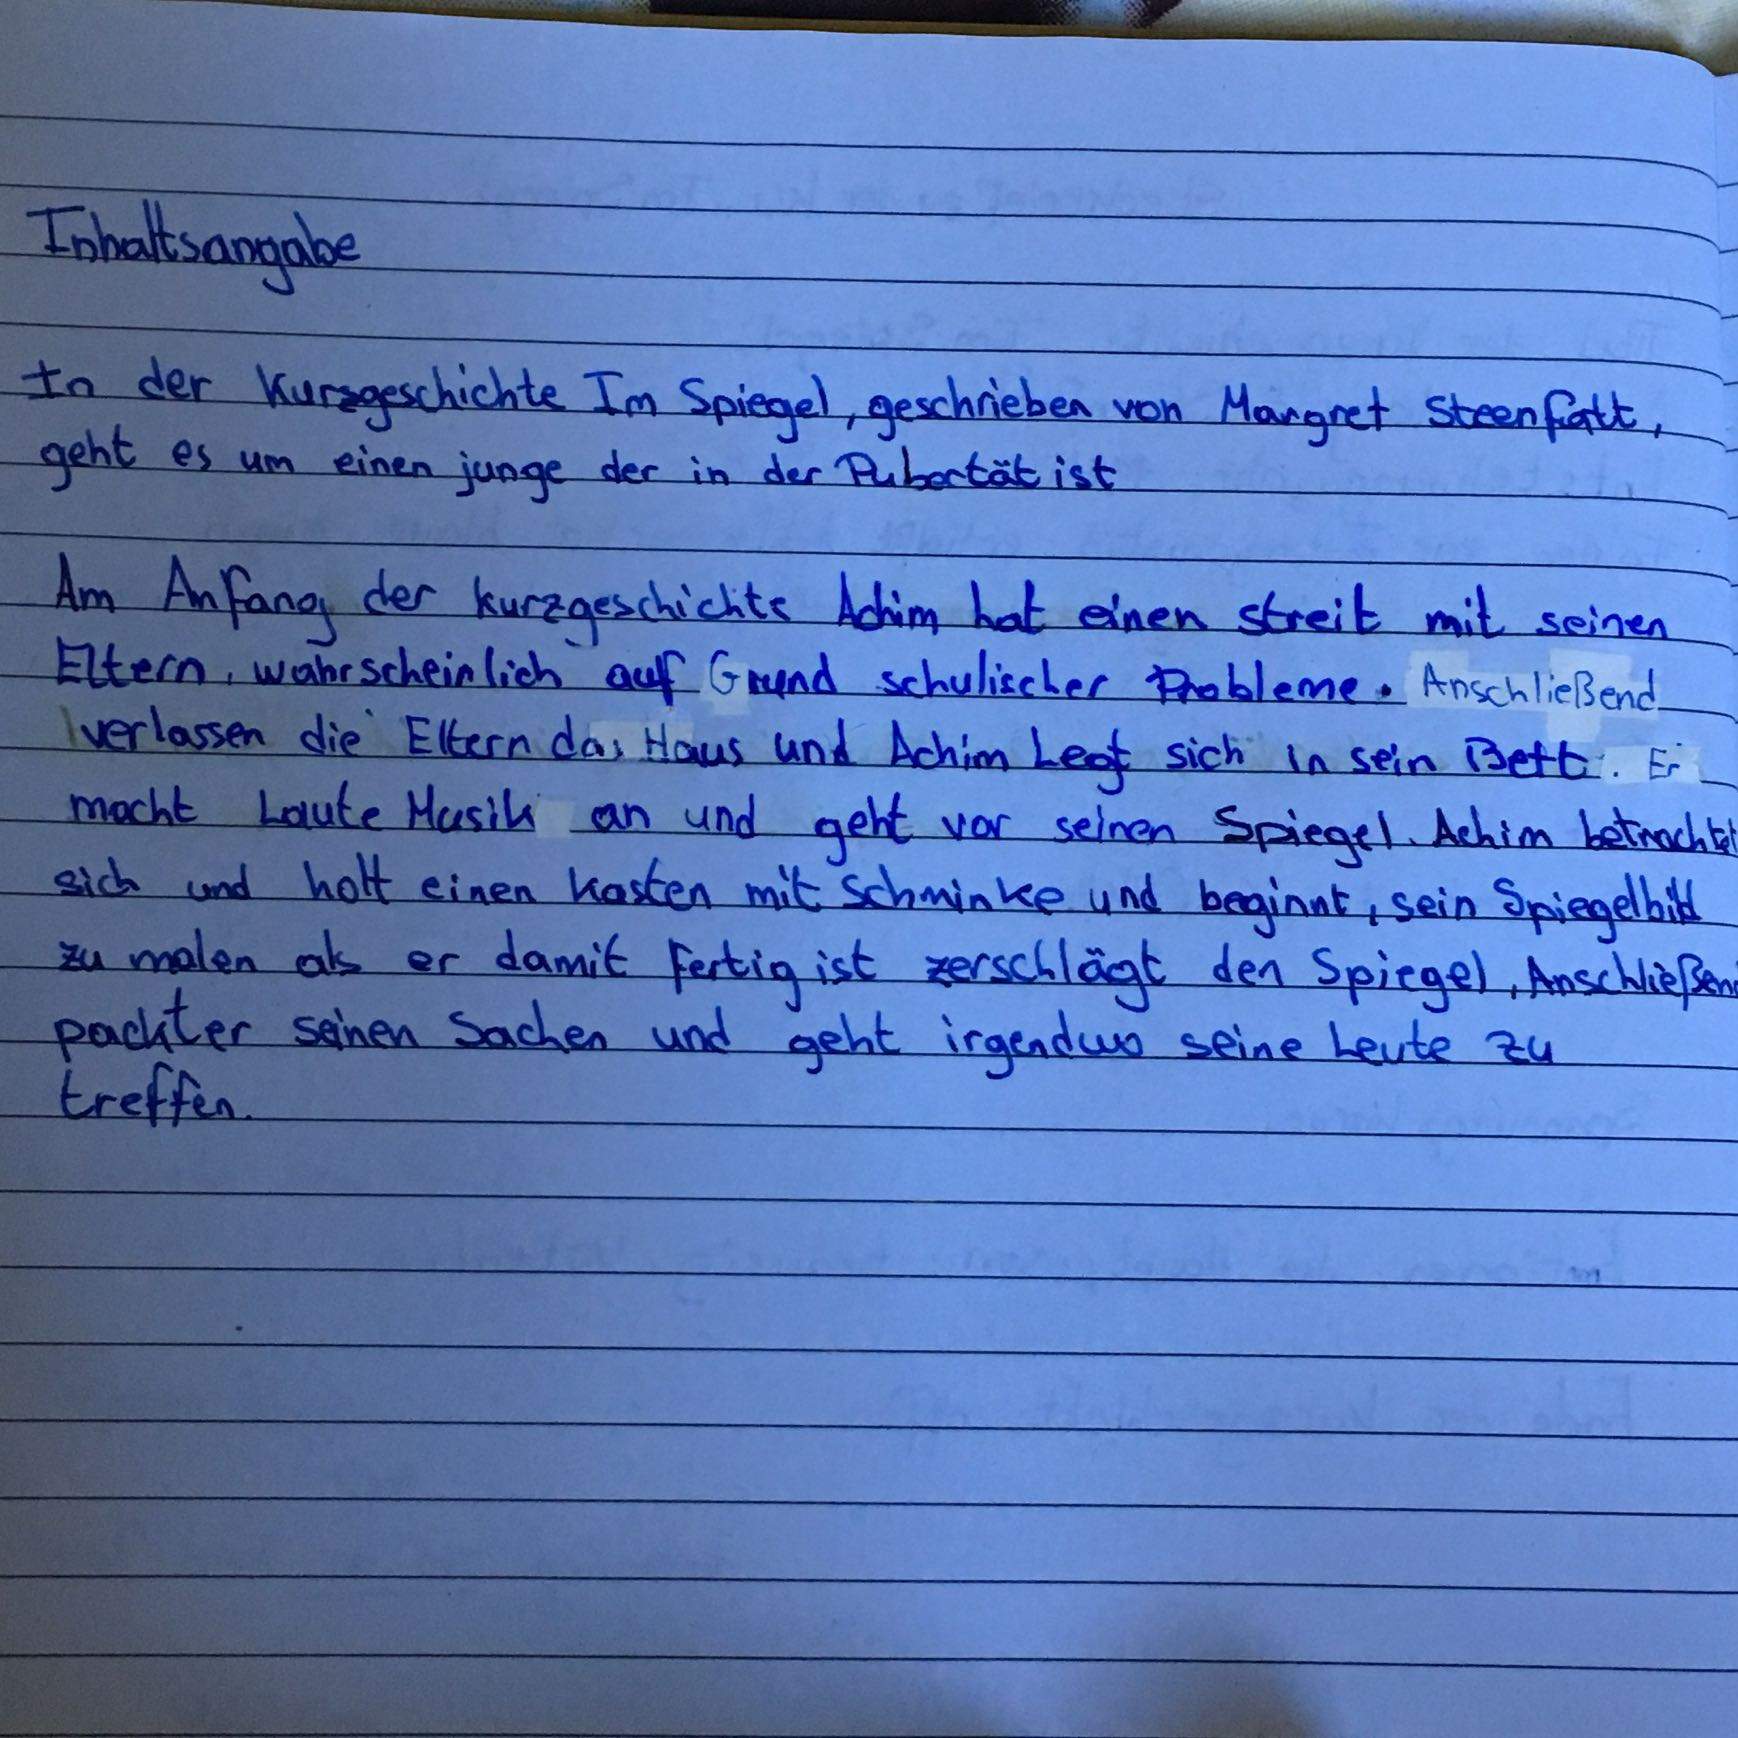 Inhaltsangabe
In der Kurzgeschichte Im Spiegel, geschrieben von Margret Steenfatt,
geht es um einen junge der in der Pubertät ist
Am Anfang der kurzgeschichte Achim hat einen streit mit seinen
Eltern, wahrscheinlich auf Grund schulischer Probleme. Anschließend
verlassen die Eltern das Haus und Achim Legt sich in sein Bett. Er
macht Laute Musik an und geht vor seinen Spiegel. Achim betrachtet
sich und holt einen Kasten mit Schminke und beginnt, sein Spiegelbild
zu malen als er damit fertig ist zerschlägt den Spiegel, Anschließen
packter seinen Sachen und geht irgendwo seine Leute zu
treffen.